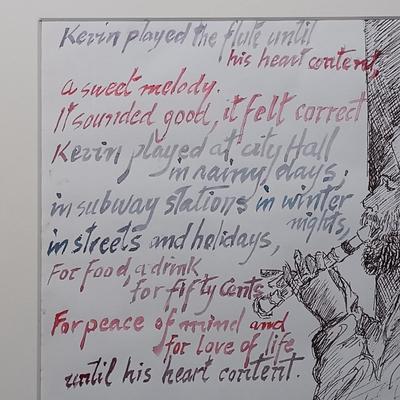 Kevin played the flute until
his heart content,
a sweet melody.
It sounded good, it felt correct
Kevin played at city Hall
in rainy days;
in subway stations in winter
nights,
in streets and holidays,
For food, a drink
for fifty cents
For peace of mind and
for love of life
until his heart content.